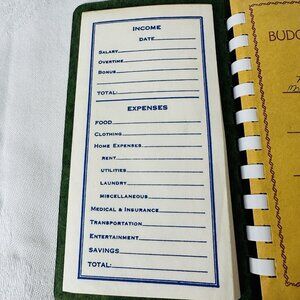 INCOME
DATE
SALARY
OVERTIME
BONUS
TOTAL:
EXPENSES
FOOD
CLOTHING
HOME EXPENSES
RENT
UTILITIES
LAUNDRY
MISCELLANEOUS
MEDICAL & INSURANCE
TRANSPORTATION
ENTERTAINMENT
SAVINGS
TOTAL:
BUDG